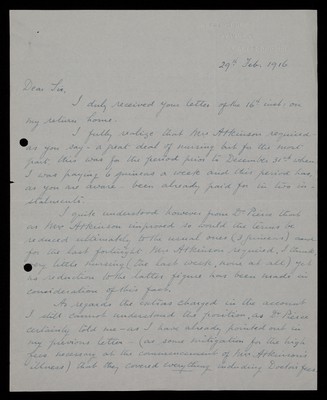 29th Feb. 1916
Dear Sir,
I duly received your letter of the 16th inst, on
my return home.
I fully realize that Mrs Atkinson required
as you say - a great deal of nursing but for the most
part this was for the period prior to December 31st when
I was paying 6 guineas a week and this period has,
as you are aware - been already paid for in two in-
stalments.
I quite understood however from Dr Pierce that
as Mrs Atkinson improved so would the terms be
reduced ultimately to the usual ones (3 guineas) and
for the last fortnight Mrs Atkinson required, I think,
very little nursing (the last week, none at all) yet
no reduction to the latter figure has been made in
consideration of this fact.
As regards the extras charged in the account
I still cannot understand the position, as Dr Pierce
certainly told me - as I have already pointed out in
my previous letter - (as some mitigation for the high
fees necessary at the commencement of Mrs Atkinson's
illness) that they covered everything including Doctors fees